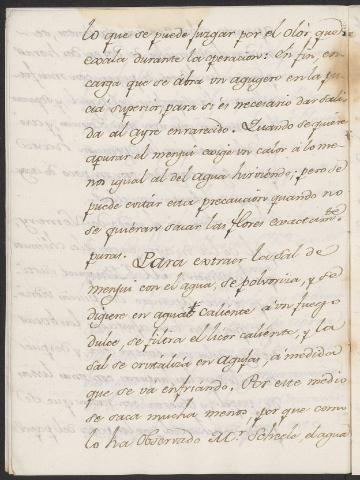 lo que se puede Juzgar por el olór que
exala durante la operacion: En fin, en=
carga que se ábra un agugero en la par
cia superior, para si es necesario dar sali=
da al ayre enrarecido. Quando se quiere
apurar el menjui exije un calór á lo me=
nos igual al del agua hirviendo; pero se
puede evitar esta precaución quando no
se quieran sacar las flores exactam.te
puras. Para extraer la sal de
menjui con el agua, se polvoriza, y se
digiere en agua caliente á un fuego
dulce, se filtra el licor caliente, y la
sal se cristaliza en Agujas, á medida
que se va enfriando. Por este medio
se saca mucha menos, por que como
lo ha observado M.r Scheele el agua